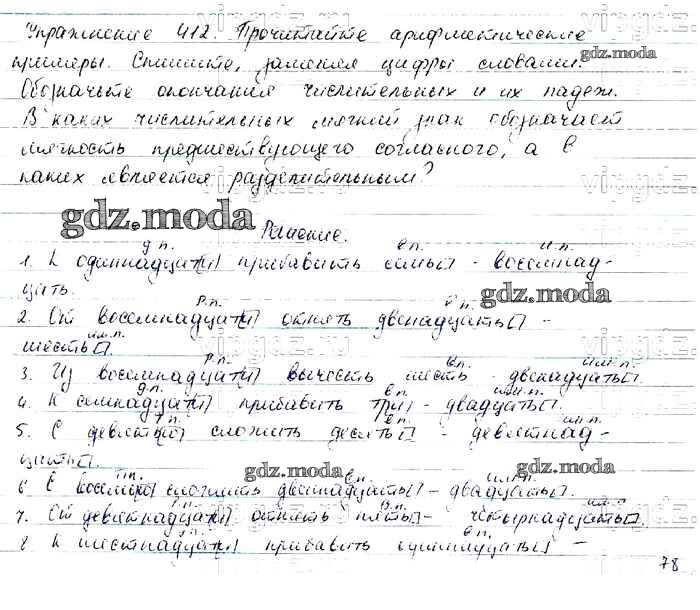 Упражнение 412. Прочитайте арифметические
примеры. Спишите, заменяя цифры словами.
Обозначьте окончания числительных и их падеж.
В каких числительных мягкий знак обозначает
мягкость предшествующего согласного, а в
каких является разделительным?
gdz.moda
Решение.
д.п. в.п. и.п.
1. К одиннадцати прибавить семь - восемнад-
цать.
Р.п. в.п.
2. От восемнадцати отнять двенадцать -
им.п.
шесть.
Р.п. в.п. им.п.
3. Из восемнадцати вычесть шесть - двенадцать.
д.п. в.п. им.п.
4. К семнадцати прибавить три - двадцать.
в.п. и.п.
5. С девятью сложить десять - девятнад-
цать.
Т.п. в.п. им.п.
6 С восемью сложить двенадцать - двадцать.
В.п. им.п.
7. От девятнадцати отнять пять - четырнадцать.
в.п.
8 К шестнадцати прибавить одиннадцать -
78
gdz.moda
gdz.moda
gdz.moda
gdz.moda
vipgdz.ru
vipgdz.ru